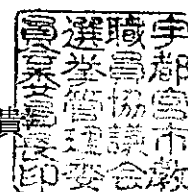 宇都宮市教
職員協議会
選挙管理委
員委員長印
貴